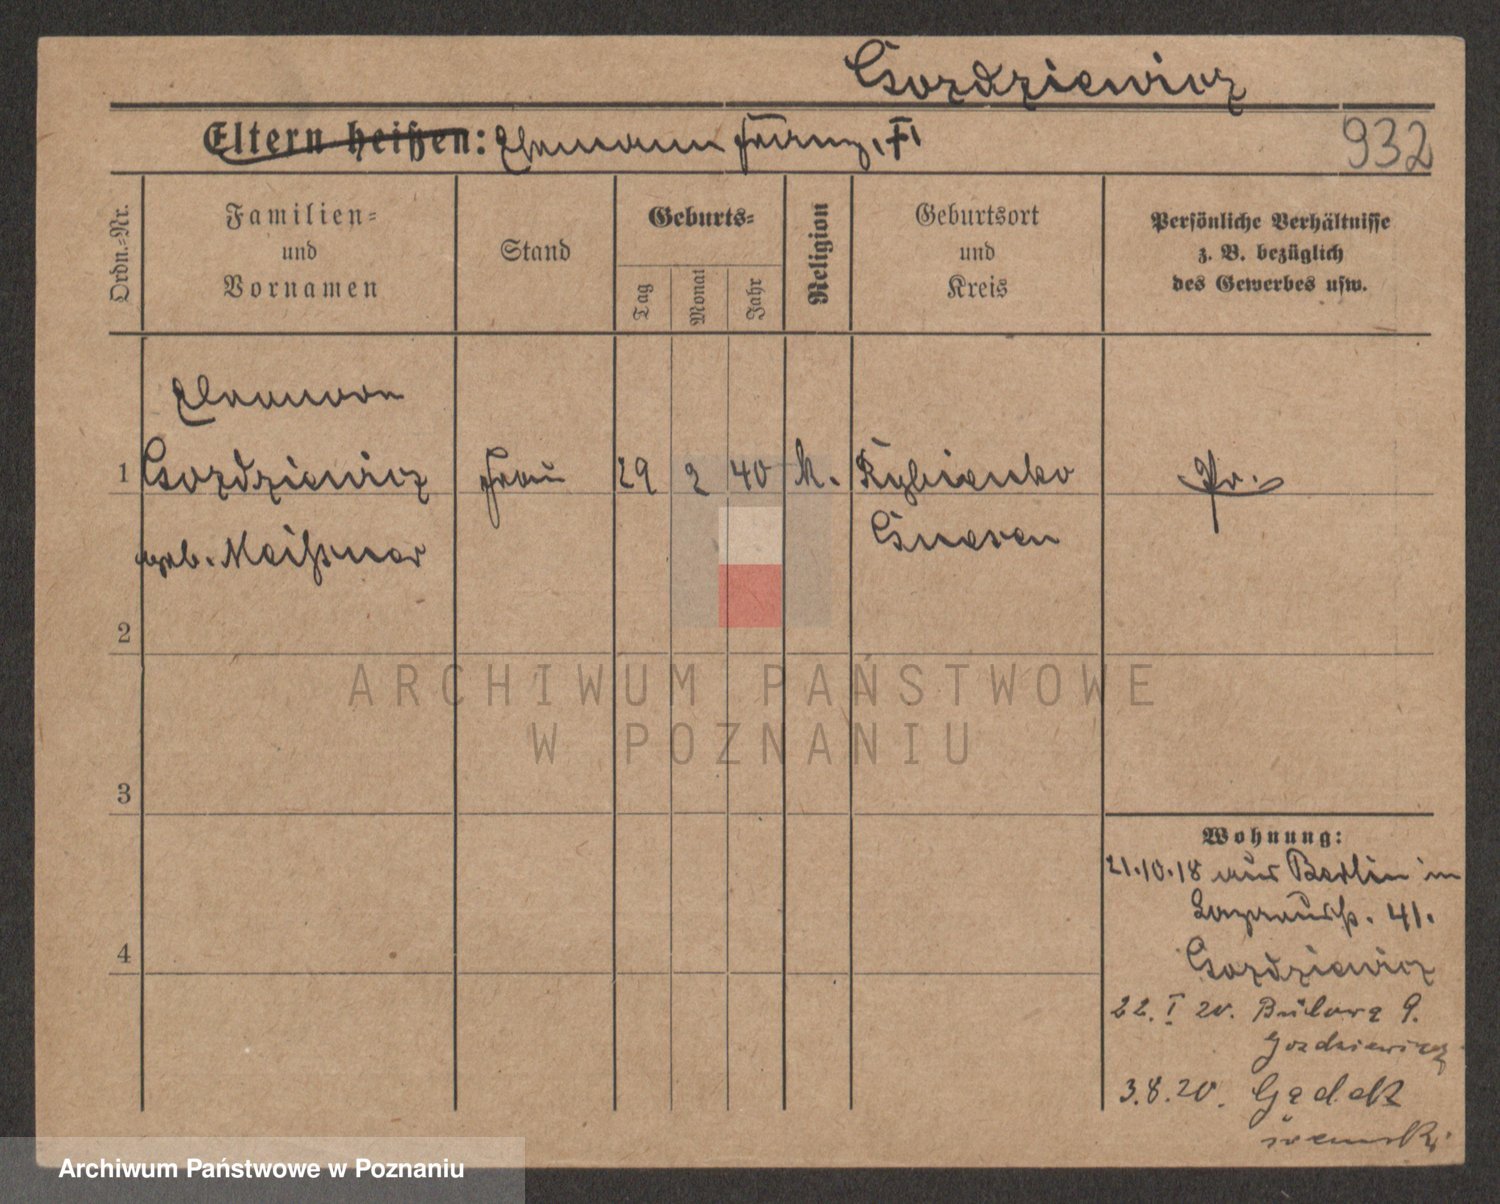 Gozdziewicz
Eltern heißen: Ehemann Franz, F.
932
Ordn.=Nr.
Familien=
und
Vornamen
Stand
Geburts=
Tag
Monat
Jahr
Religion
Geburtsort
und
Kreis
Persönliche Verhältnisse
z. B. bezüglich
des Gewerbes usw.
Eleonore
1 Gozdziewicz Frau 29 2 40 k. Rybienko Pr.
geb. Meißner Gnesen
2
3
4
Wohnung:
21.10.18 aus Berlin in
41.
Gozdziewicz
22. I 20. 9.
Gozdziewicz
3.8.20.
ARCHIWUM PAŃSTWOWE
W POZNANIU
Archiwum Państwowe w Poznaniu